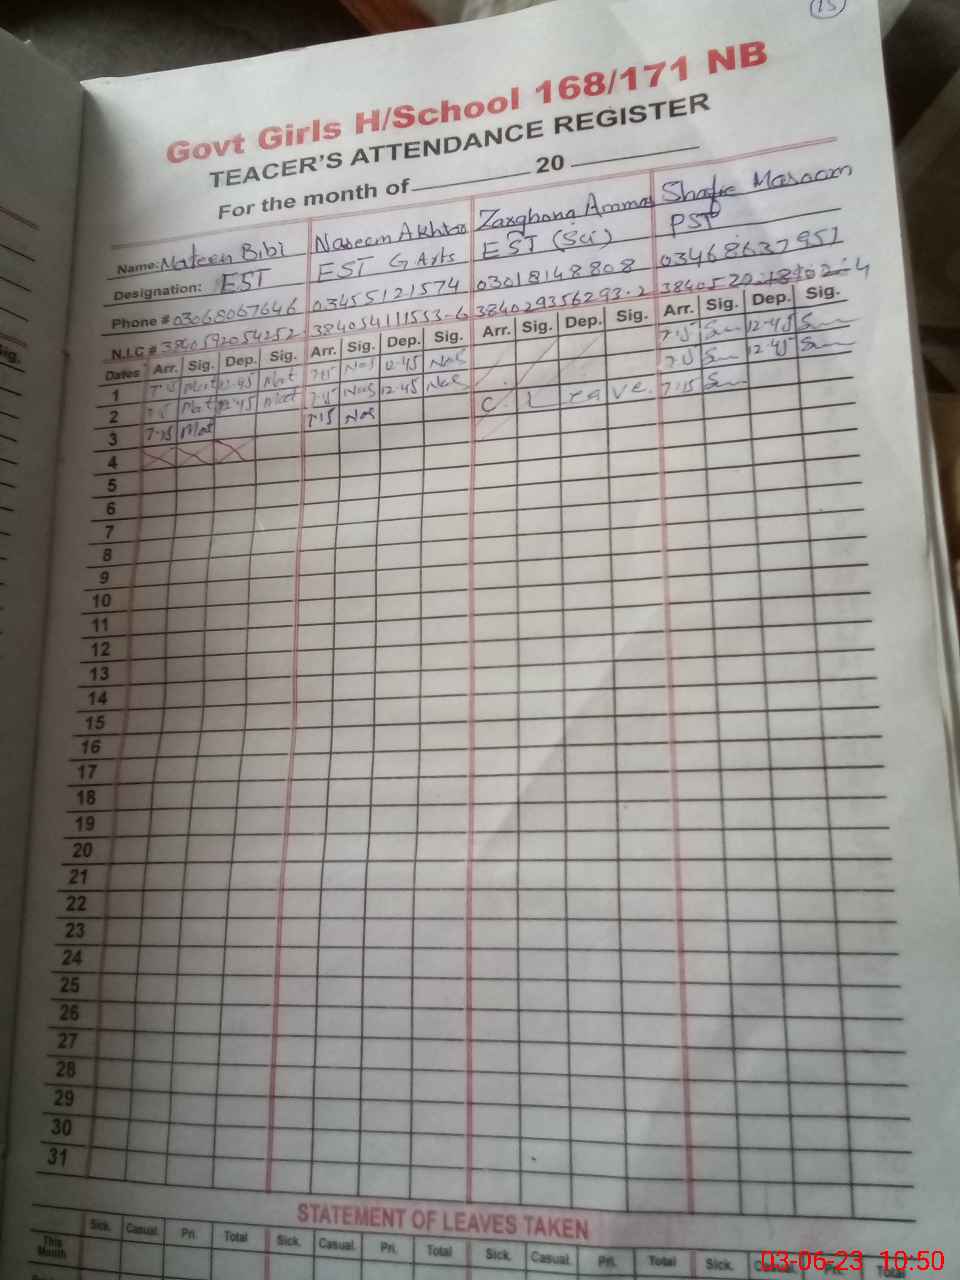 15
Govt Girls H/School 168/171 NB
TEACER'S ATTENDANCE REGISTER
For the month of 20
Name: Mateen Bibi Naseem Akhtar Zarghona Ammad Shafie Masoom
Designation: EST EST G Arts EST (Sci) PST
Phone # 03068067646 03455121574 03018148808 03468637957
N.I.C # 3840592054252 384054111553-6 384029356293-2
Dates Arr. Sig. Dep. Sig. Arr. Sig. Dep. Sig. Arr. Sig. Dep. Sig. Arr. Sig. Dep. Sig.
1 7-15 Mat 12-45 Mat 7-15 Nas 12-45 Nas 7-15 12-45
2 7-15 Mat 12-45 Mat 7-15 Nas 12-45 Nas 7-15 12-45
3 7-15 Mat 7-15 Nas C. Leave. 7-15
4
5
6
7
8
9
10
11
12
13
14
15
16
17
18
19
20
21
22
23
24
25
26
27
28
29
30
31
STATEMENT OF LEAVES TAKEN
Sick. Casual. Pri. Total Sick. Casual. Pri. Total Sick. Casual. Pri. Total Sick. Cas Pri. Total
This Month
03-06-23 10:50
sig.